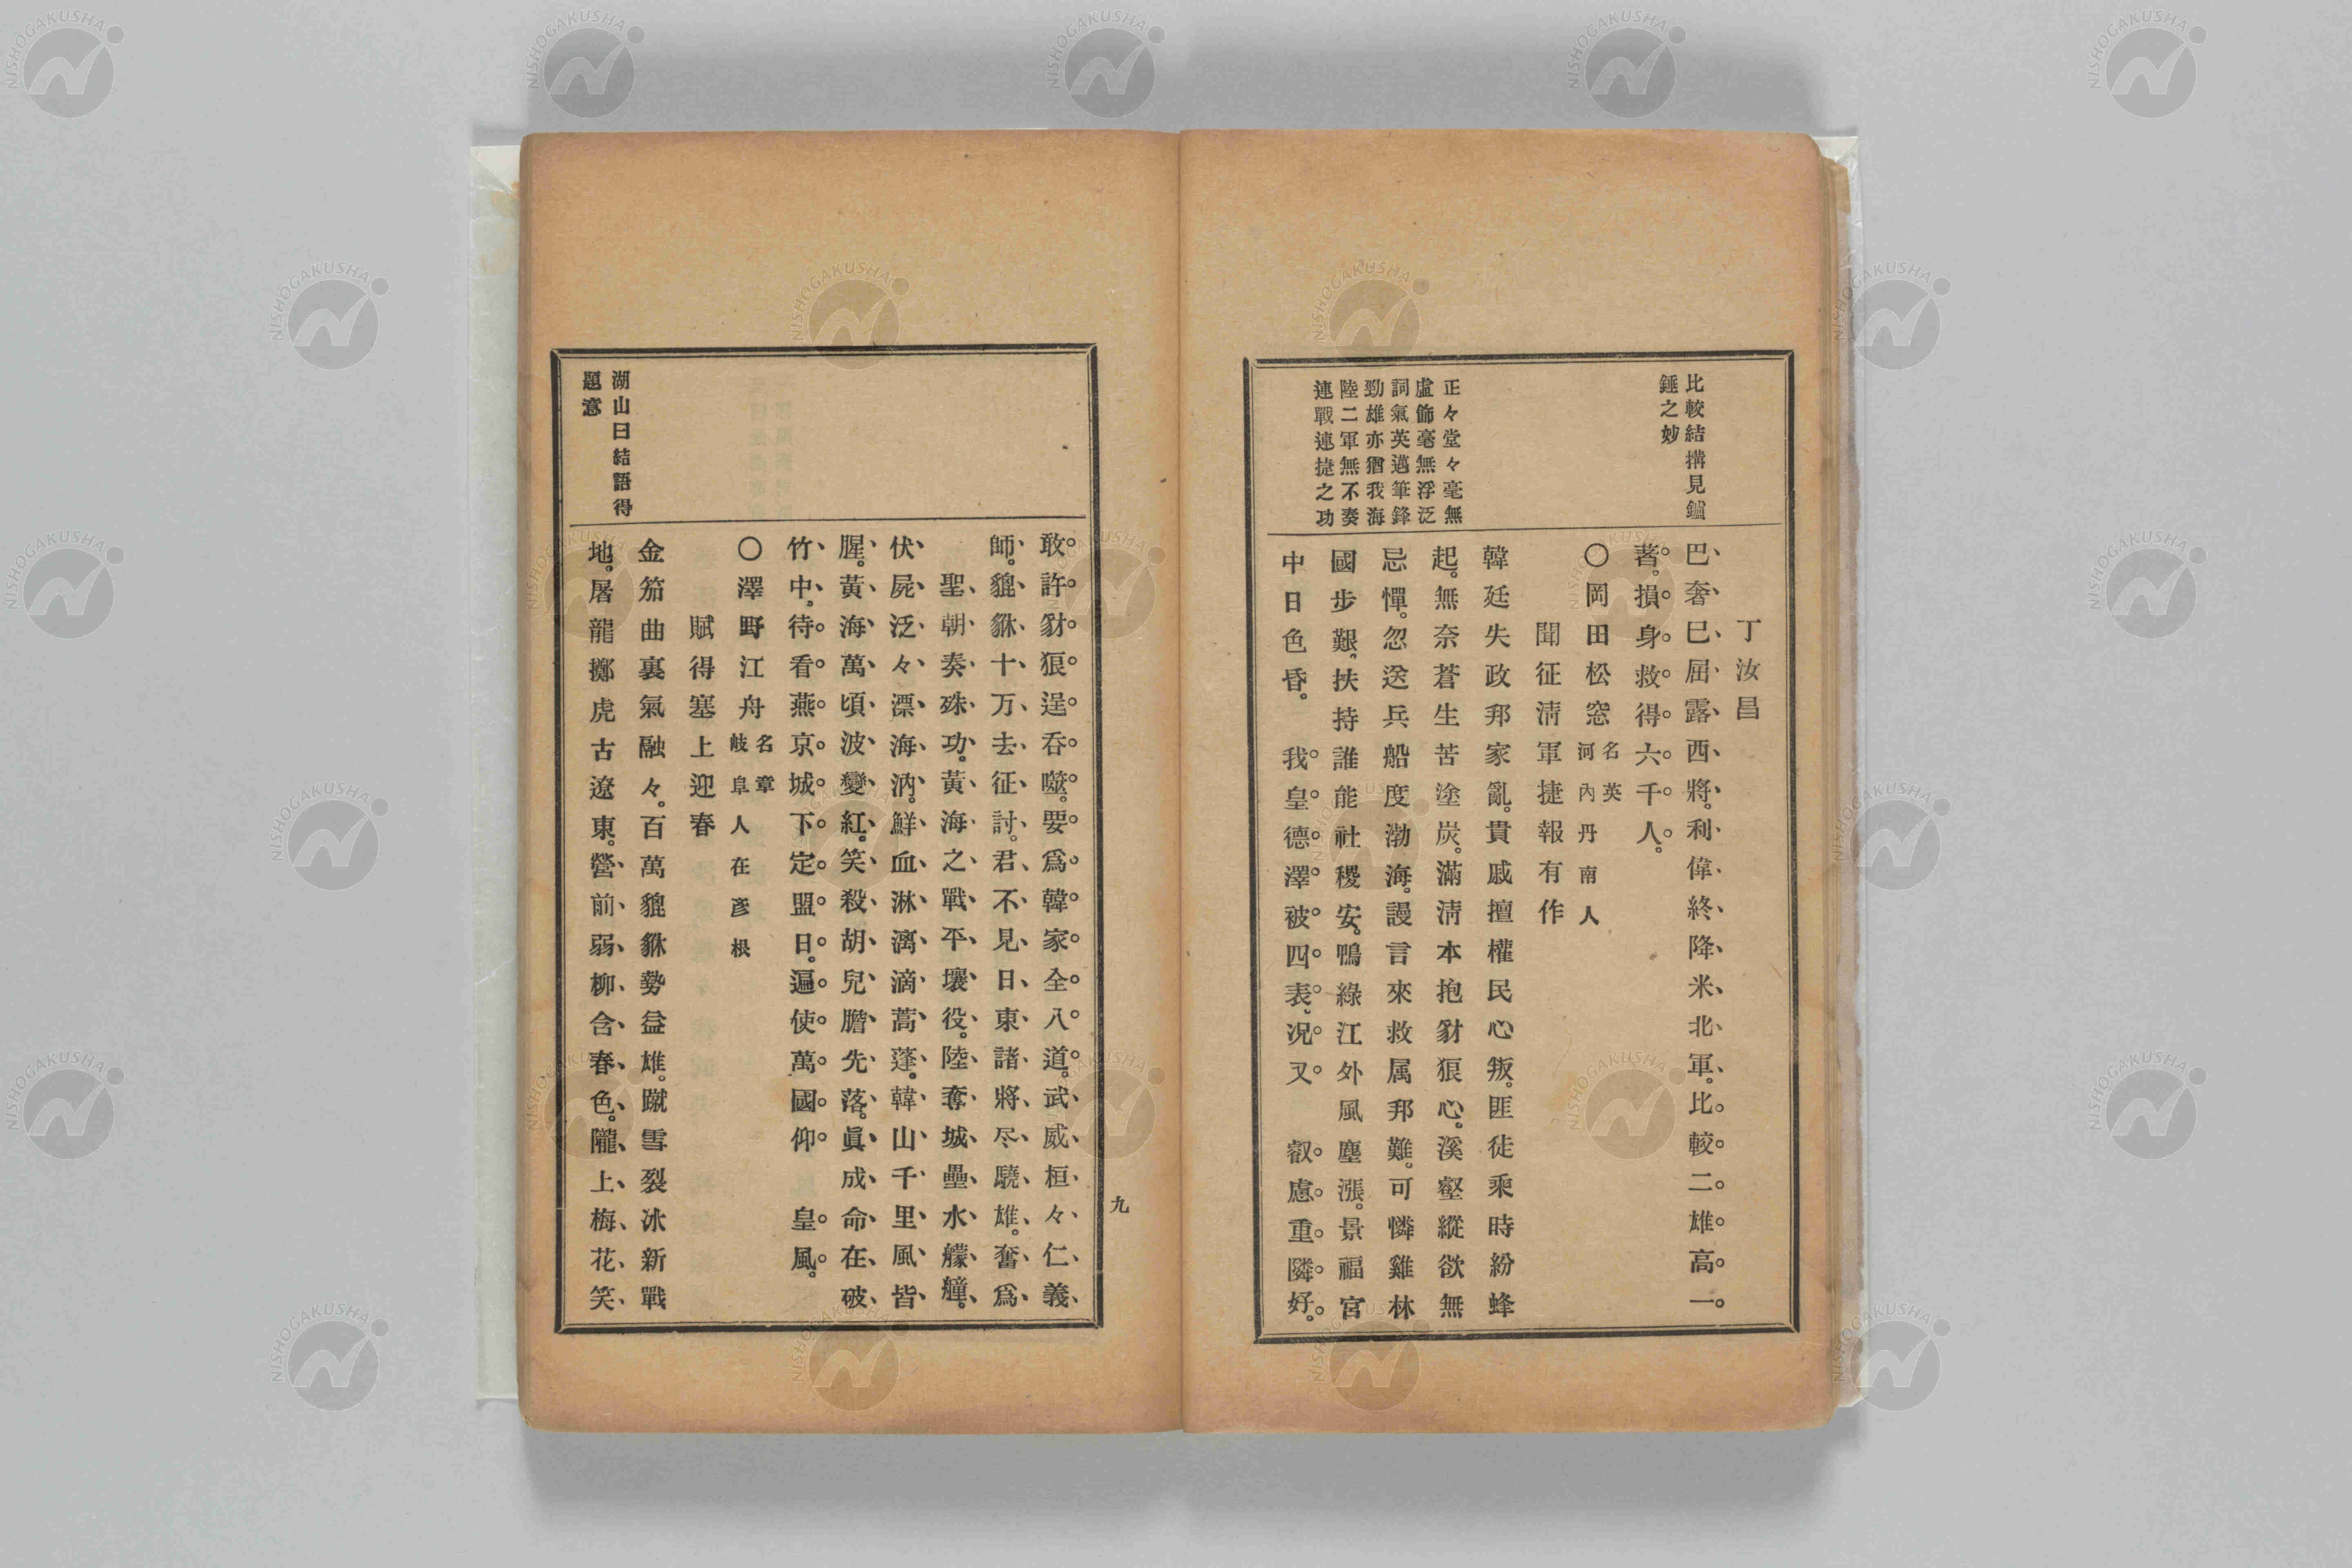 比較結搆見鑪
錘之妙
正々堂々毫無
虛飾毫無浮泛
詞氣英邁筆鋒
勁雄亦猶我海
陸二軍無不奏
連戰連捷之功
丁汝昌
巴奢巳屈露西將。利偉終降米北軍。比較二雄高一
著。損身救得六千人。
〇岡田松窓 名英 河內丹南人
聞征淸軍捷報有作
韓廷失政邦家亂。貴戚擅權民心叛。匪徒乘時紛蜂
起。無奈蒼生苦塗炭。滿淸本抱豺狼心。溪壑縱欲無
忌憚。忽送兵船度渤海。謾言來救属邦難。可憐雞林
國步艱。扶持誰能社稷安。鴨綠江外風塵漲。景福宮
中日色昏。我皇德澤被四表。況又叡慮重隣好。
九
湖山曰結語得
題意
敢許豺狼逞吞噬。要爲韓家全八道。武威桓々仁義
師。貔貅十万去征討。君不見日東諸將尽驍雄。奮爲
聖朝奏硃功。黃海之戰平壤役。陸奪城壘水艨艟。
伏屍泛々漂海汭。鮮血淋漓滴蒿蓬。韓山千里風皆
腥。黃海萬頃波變紅。笑殺胡兒膽先落。眞成命在破
竹中。待看燕京城下定盟日。遍使萬國仰皇風。
〇澤野江舟 名章 岐阜人在彥根
賦得塞上迎春
金笳曲裏氣融々。百萬貔貅勢益雄。蹴雪裂冰新戰
地。屠龍擲虎古遼東。營前弱柳含春色。隴上梅花笑